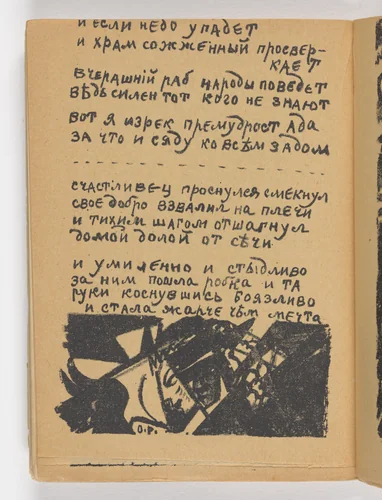 и если небо упадет
и храм сожженный просвер-
кает
вчерашній раб народы поведет
вѣдь силен тот кого не знают
вот я изрек премудрост ада
за что и сяду ко всѣм задом
счастливец проснулся, смекнул
свое добро взвалил на плечи
и тихим шагом отшагнул
домой долой от сѣчи
и умиленно и стыдливо
за ним пошла робка и та
руки коснувшись боязливо
и стала жарче чѣм мечта
О.Р.